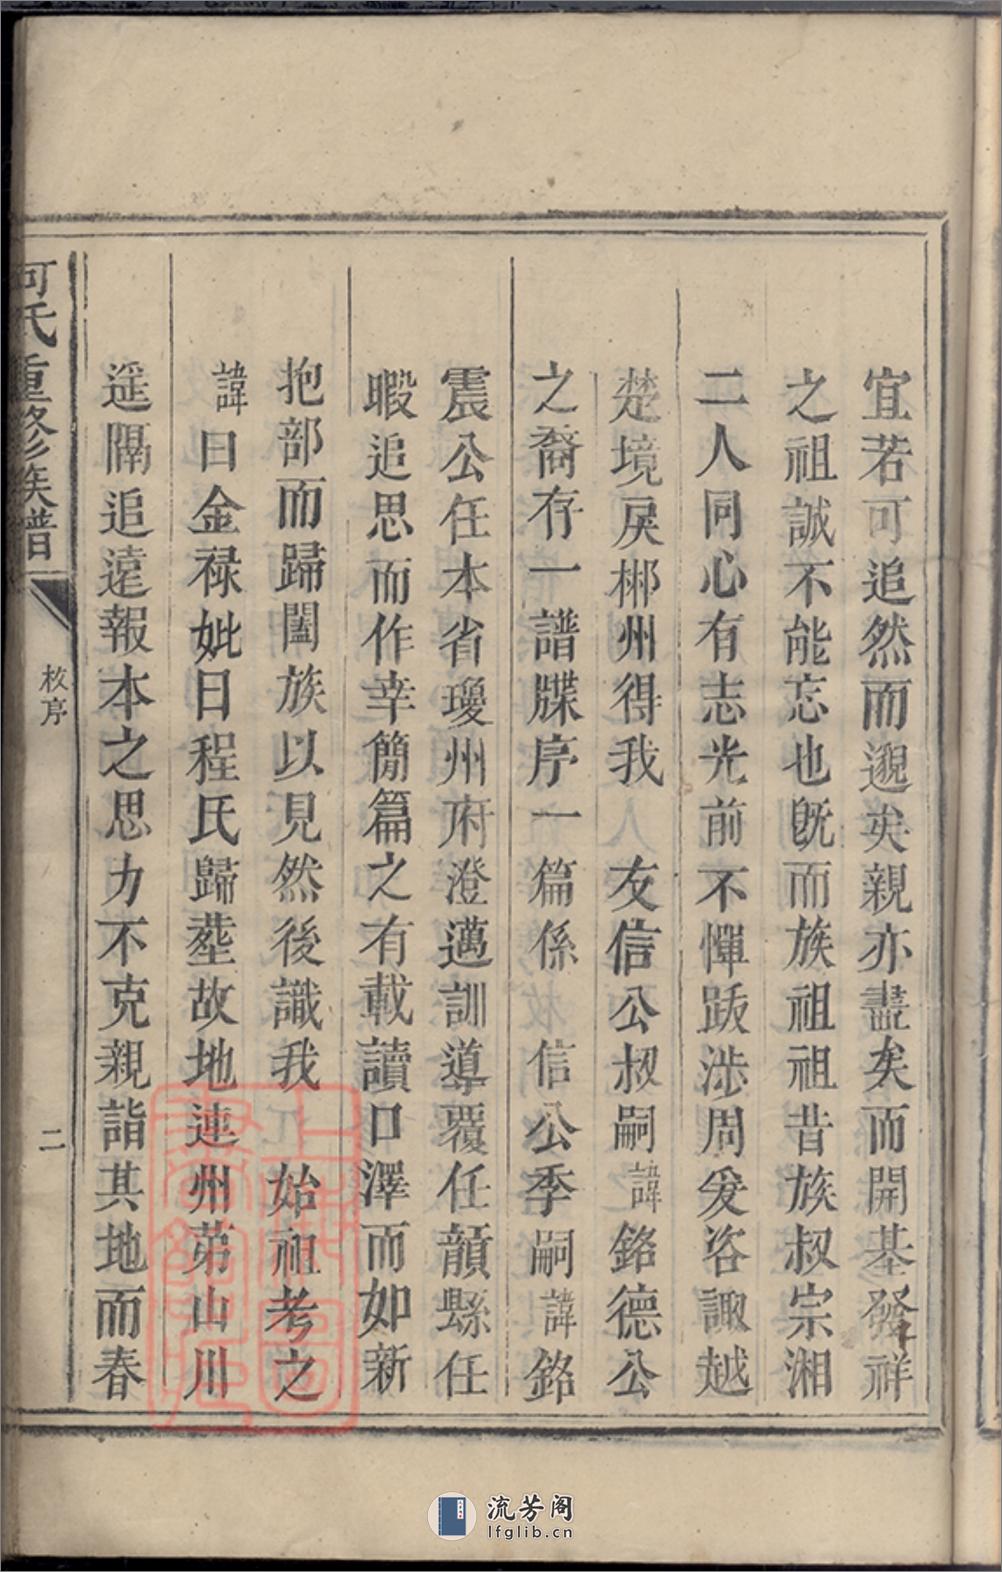 宜若可追然而邈矣親亦盡矣而開基發祥
之祖誠不能忘也旣而族祖祖昔族叔宗湘
二人同心有志光前不憚跋涉周爰咨諏越
楚境戾郴州得我　友信公叔嗣諱銘德公
之裔存一譜牒序一篇係　信公季嗣諱銘
震公任本省瓊州府澄邁訓導覆任韻縣任
暇追思而作幸簡篇之有載讀口澤而如新
抱部而歸闔族以見然後識我　始祖考之
諱曰金禄妣曰程氏歸塟故地連州苐山川
遥隔追遠報本之思力不克親詣其地而春
何氏重修族譜
枚序
二
上海圖書館藏
流芳阁
lfglib.cn